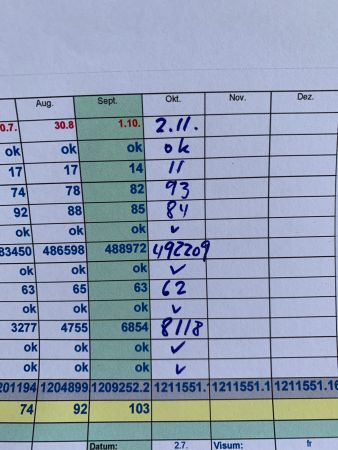 Aug. Sept. Okt. Nov. Dez.
0.7. 30.8 1.10. 2.11.
ok ok ok ok
17 17 14 11
74 78 82 93
92 88 85 84
ok ok ok ✓
83450 486598 488972 492209
ok ok ok ✓
63 65 63 62
ok ok ok ✓
3277 4755 6854 8118
ok ok ok ✓
ok ok ok ✓
201194 1204899 1209252.2 1211551.1 1211551.1 1211551.16
74 92 103
Datum: 2.7. Visum: fr